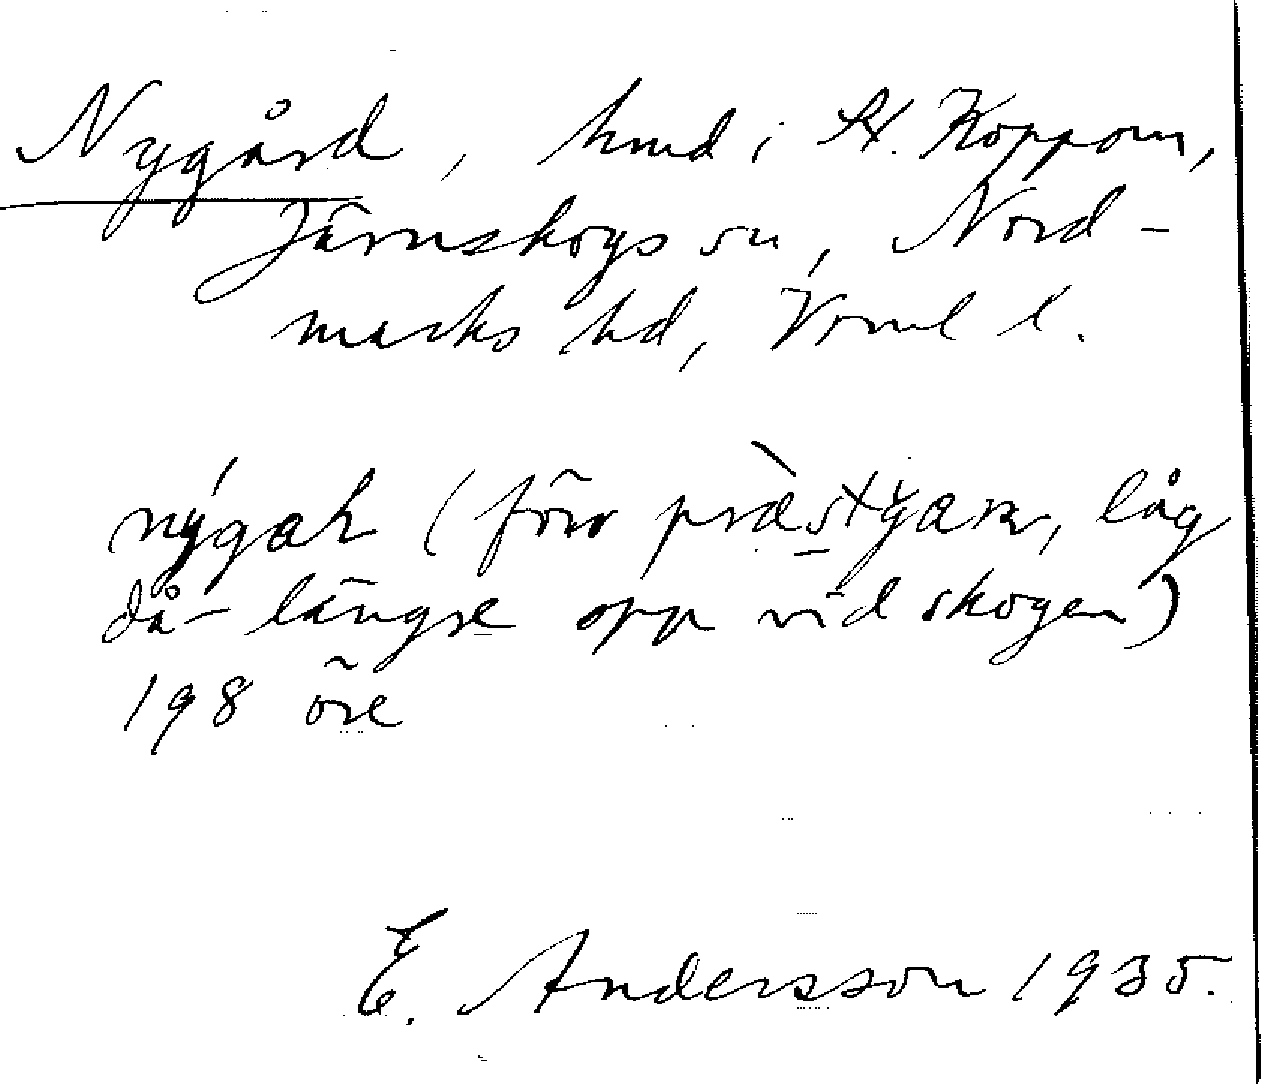 Nygård, hmd i St. Koppom,
Järnskogs sn, Nord-
marks hd, Värml l.
nýgaɫ (förr præ̀stgaɳ, låg
då längre opp vid skogen)
198 öre
E. Andersson 1935.